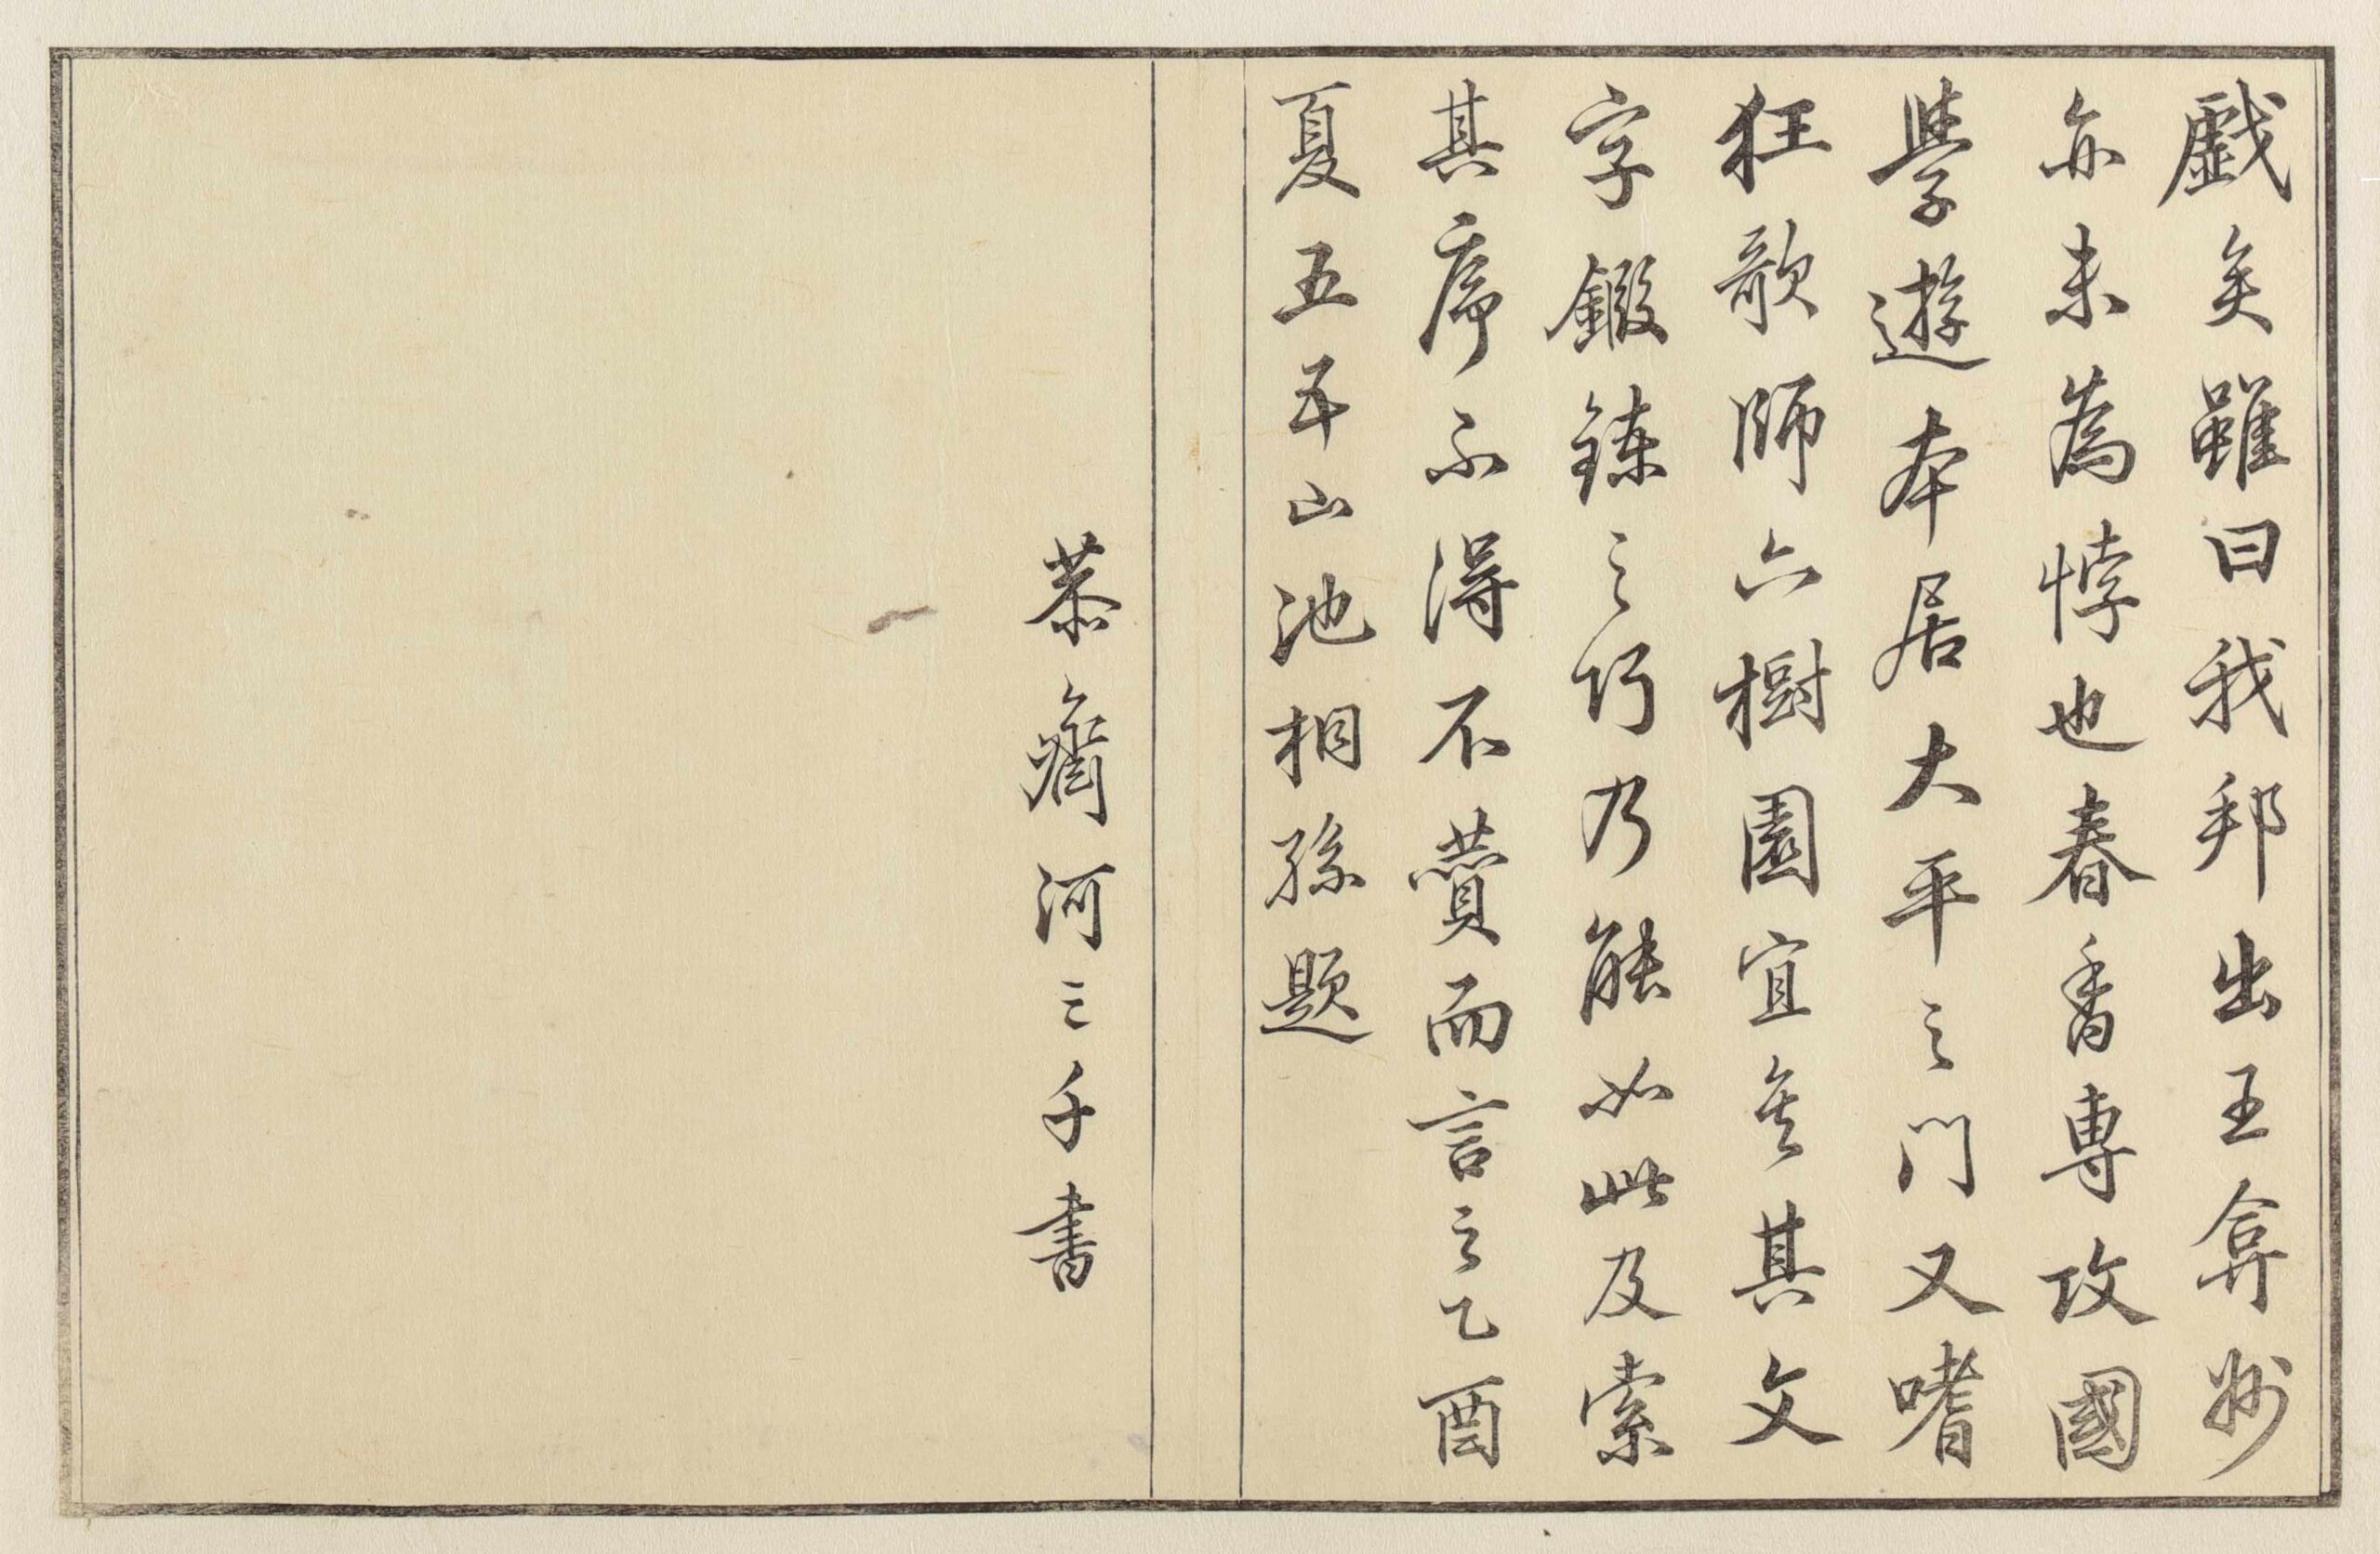 戯矣雖曰我邦出王弇州
亦未為悖也春香専攻國
學遊本居大平之門又嗜
狂歌師六樹園宜矣其文
字鍛錬之巧乃能如此及索
其序不得不賛而言之乙酉
夏五平山池相孫題
恭齋河三千書